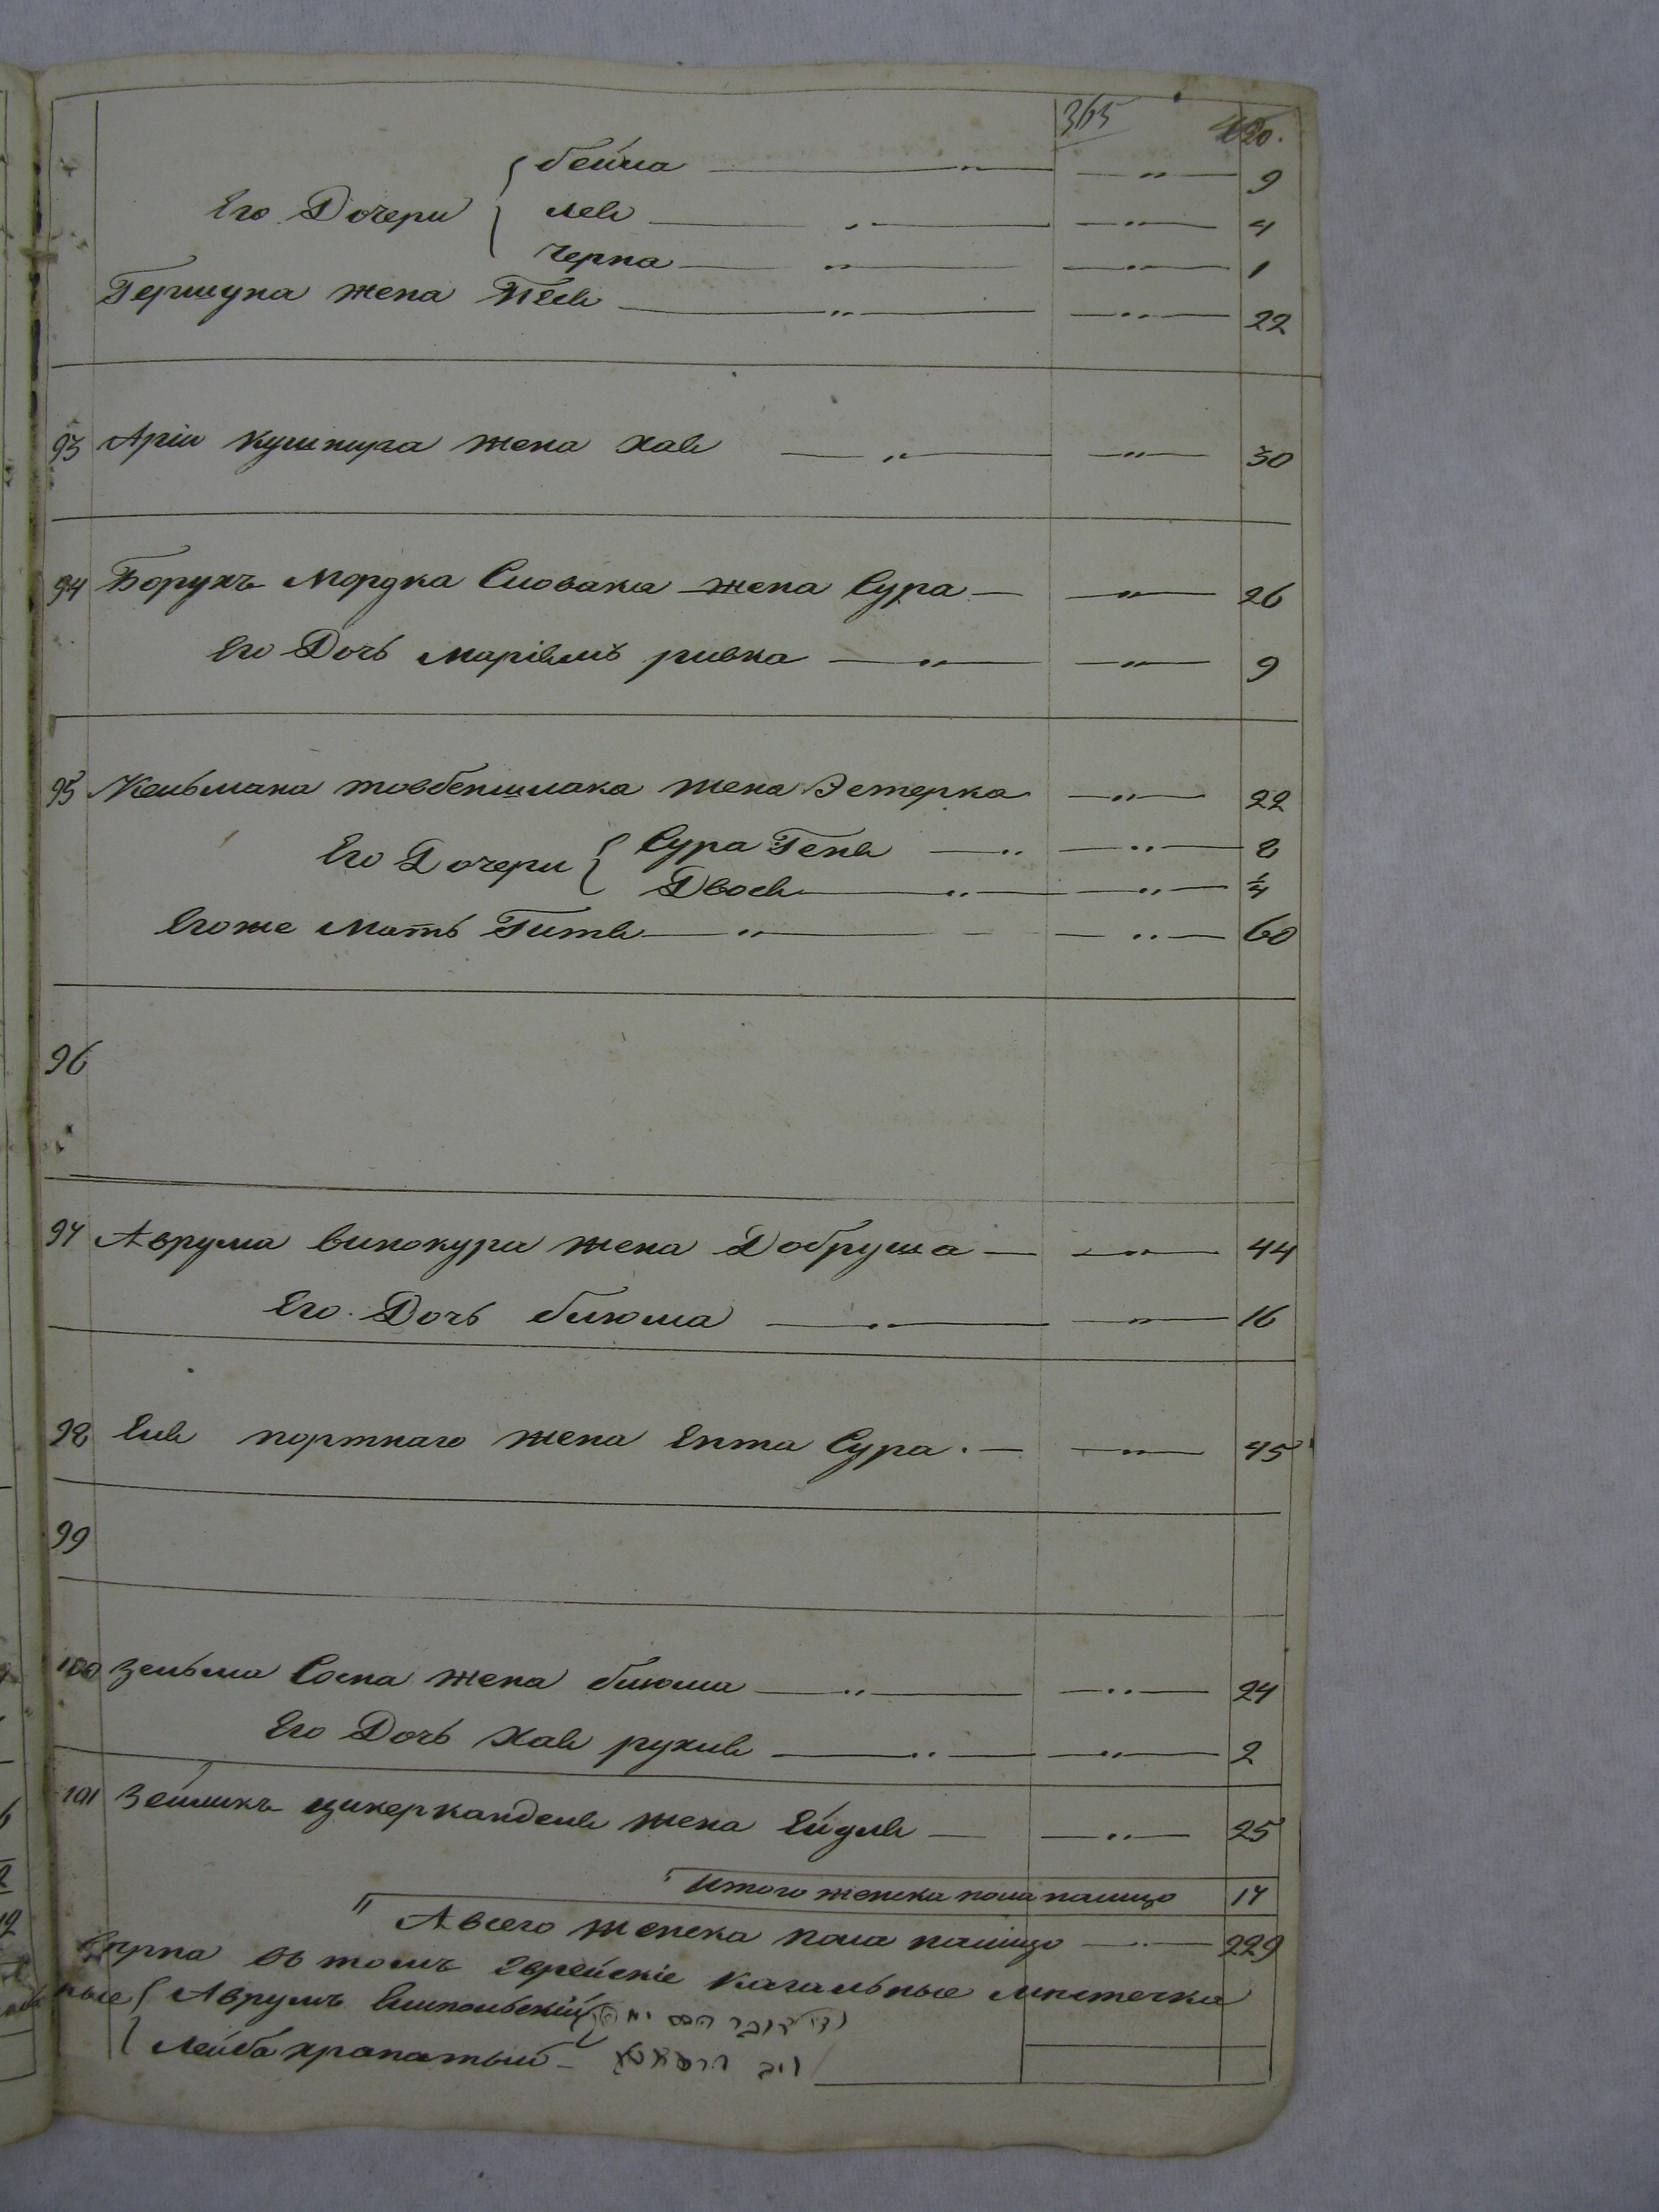 365
Бейла — " — — " — 9
Его Дочери лея — " — — " — 4
Черна — " — — " — 1
Гершуна жена Песя — " — — " — 22
93 Арiи кушнира жена хая — " — — " — 30
94 Борухъ Мордка Словака жена Сура — — " — 26
Его Дочь марiямъ ривка — " — — " — 9
95 Кельмана товбеншлака жена Эстерка — " — 22
Его Дочери Сура Геня — " — — " — 8
Двося — " — — " — 1/4
Егоже Мать Гитля — " — — " — 60
96
97 Аврума винокура жена Добруша — — " — 44
Его Дочь блюма — " — — " — 16
98 Еля портнаго жена Ента Сура — — " — 45
99
100 Зельма Сосна жена блюма — " — — " — 24
Его Дочь Хая рухля — " — — " — 2
101 Зейликъ цикерканделя жена Ейдля — — " — 25
Итого женска пола налицо 17
А всего женска пола налицо — " — 229
въ томъ Еврейскiе кагальные местечка
Аврумъ
Лейба храпатый